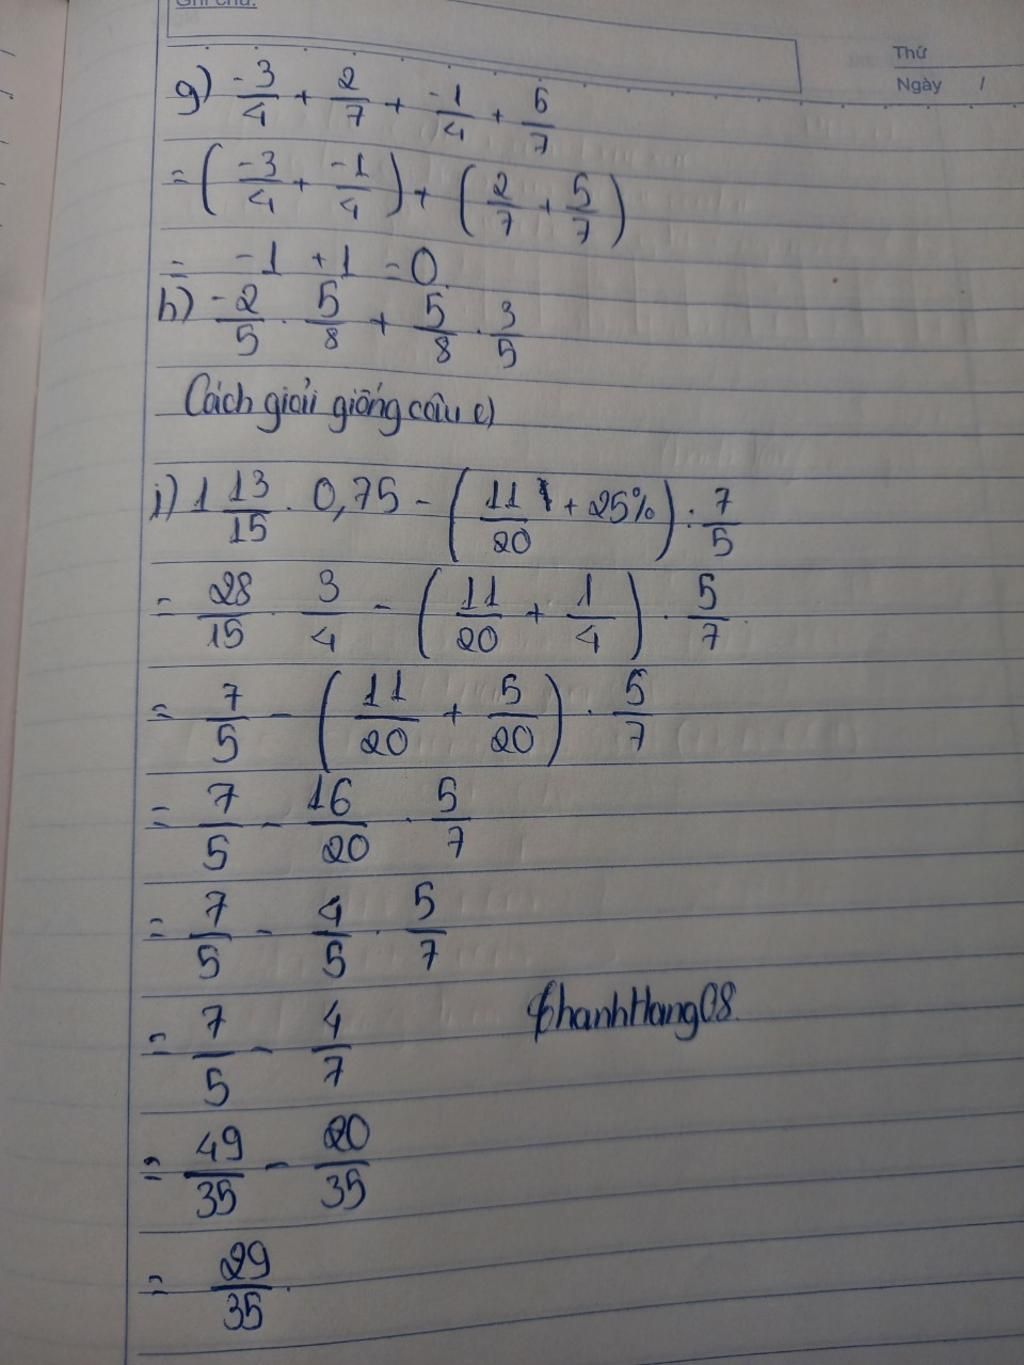 Ghi chú:
Thứ
Ngày /
g) -3/4 + 2/7 + -1/4 + 5/7
= ( -3/4 + -1/4 ) + ( 2/7 + 5/7 )
= -1 + 1 = 0.
h) -2/5 . 5/8 + 5/8 . 3/5
Cách giải giống câu c)
i) 1 13/15 . 0,75 - ( 11/20 + 25% ) : 7/5
= 28/15 . 3/4 - ( 11/20 + 1/4 ) . 5/7
= 7/5 - ( 11/20 + 5/20 ) . 5/7
= 7/5 - 16/20 . 5/7
= 7/5 - 4/5 . 5/7
= 7/5 - 4/7
ThanhHang08.
= 49/35 - 20/35
= 29/35 .